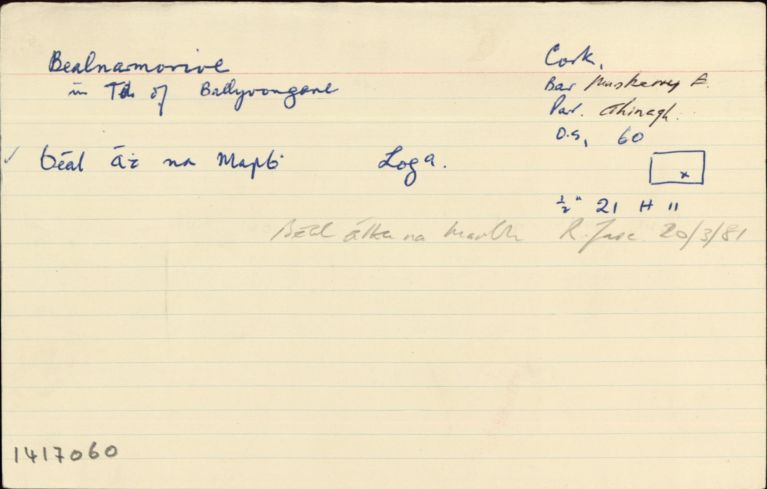 Bealnamorive
in Td of Ballyvongane
Cork,
Bar Muskerry E.
Par. Aghinagh.
O.S. 60
✓ béal át na marḃ Loga.
x
½" 21 H 11
Béal Átha na Marbh R. Josc. 20/3/81
1417060